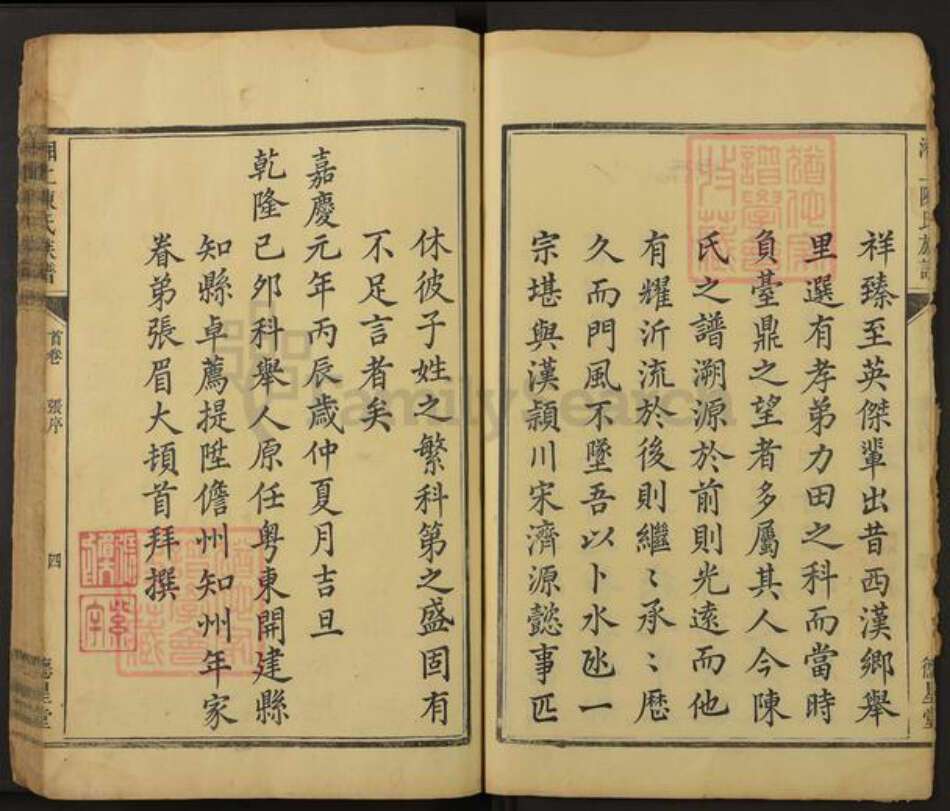 祥臻至英傑輩出昔西漢鄉舉
里選有孝弟力田之科而當時
負臺鼎之望者多屬其人今陳
氏之譜溯源於前則光遠而他
有耀沂流於後則繼〻承〻歷
久而門風不墜吾以卜水氹一
宗堪與漢潁川宋濟源懿事匹
休彼子姓之繁科第之盛固有
不足言者矣
嘉慶元年丙辰歲仲夏月吉旦
乾隆己夘科舉人原任粵東開建縣
知縣卓薦提陞儋州知州年家
眷弟張眉大頓首拜撰
陳氏族譜
首卷
張序
四
德星堂
FamilySearch